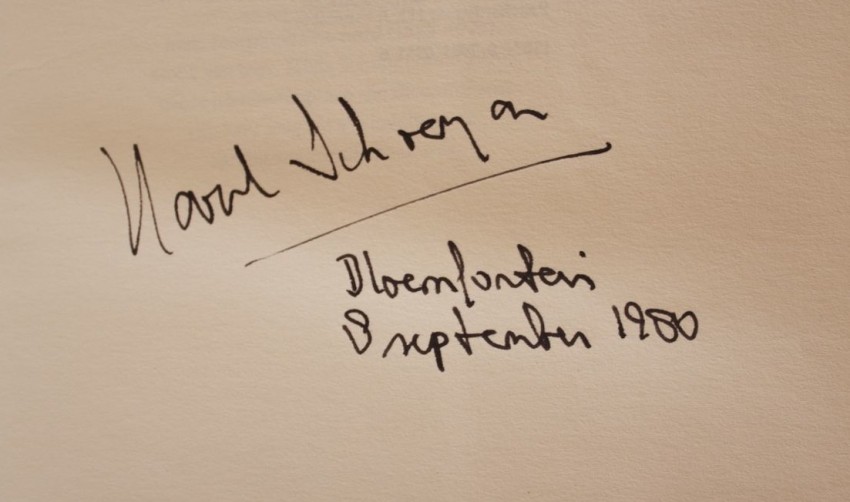 Karel Schoeman
Bloemfontein
8 september 1980